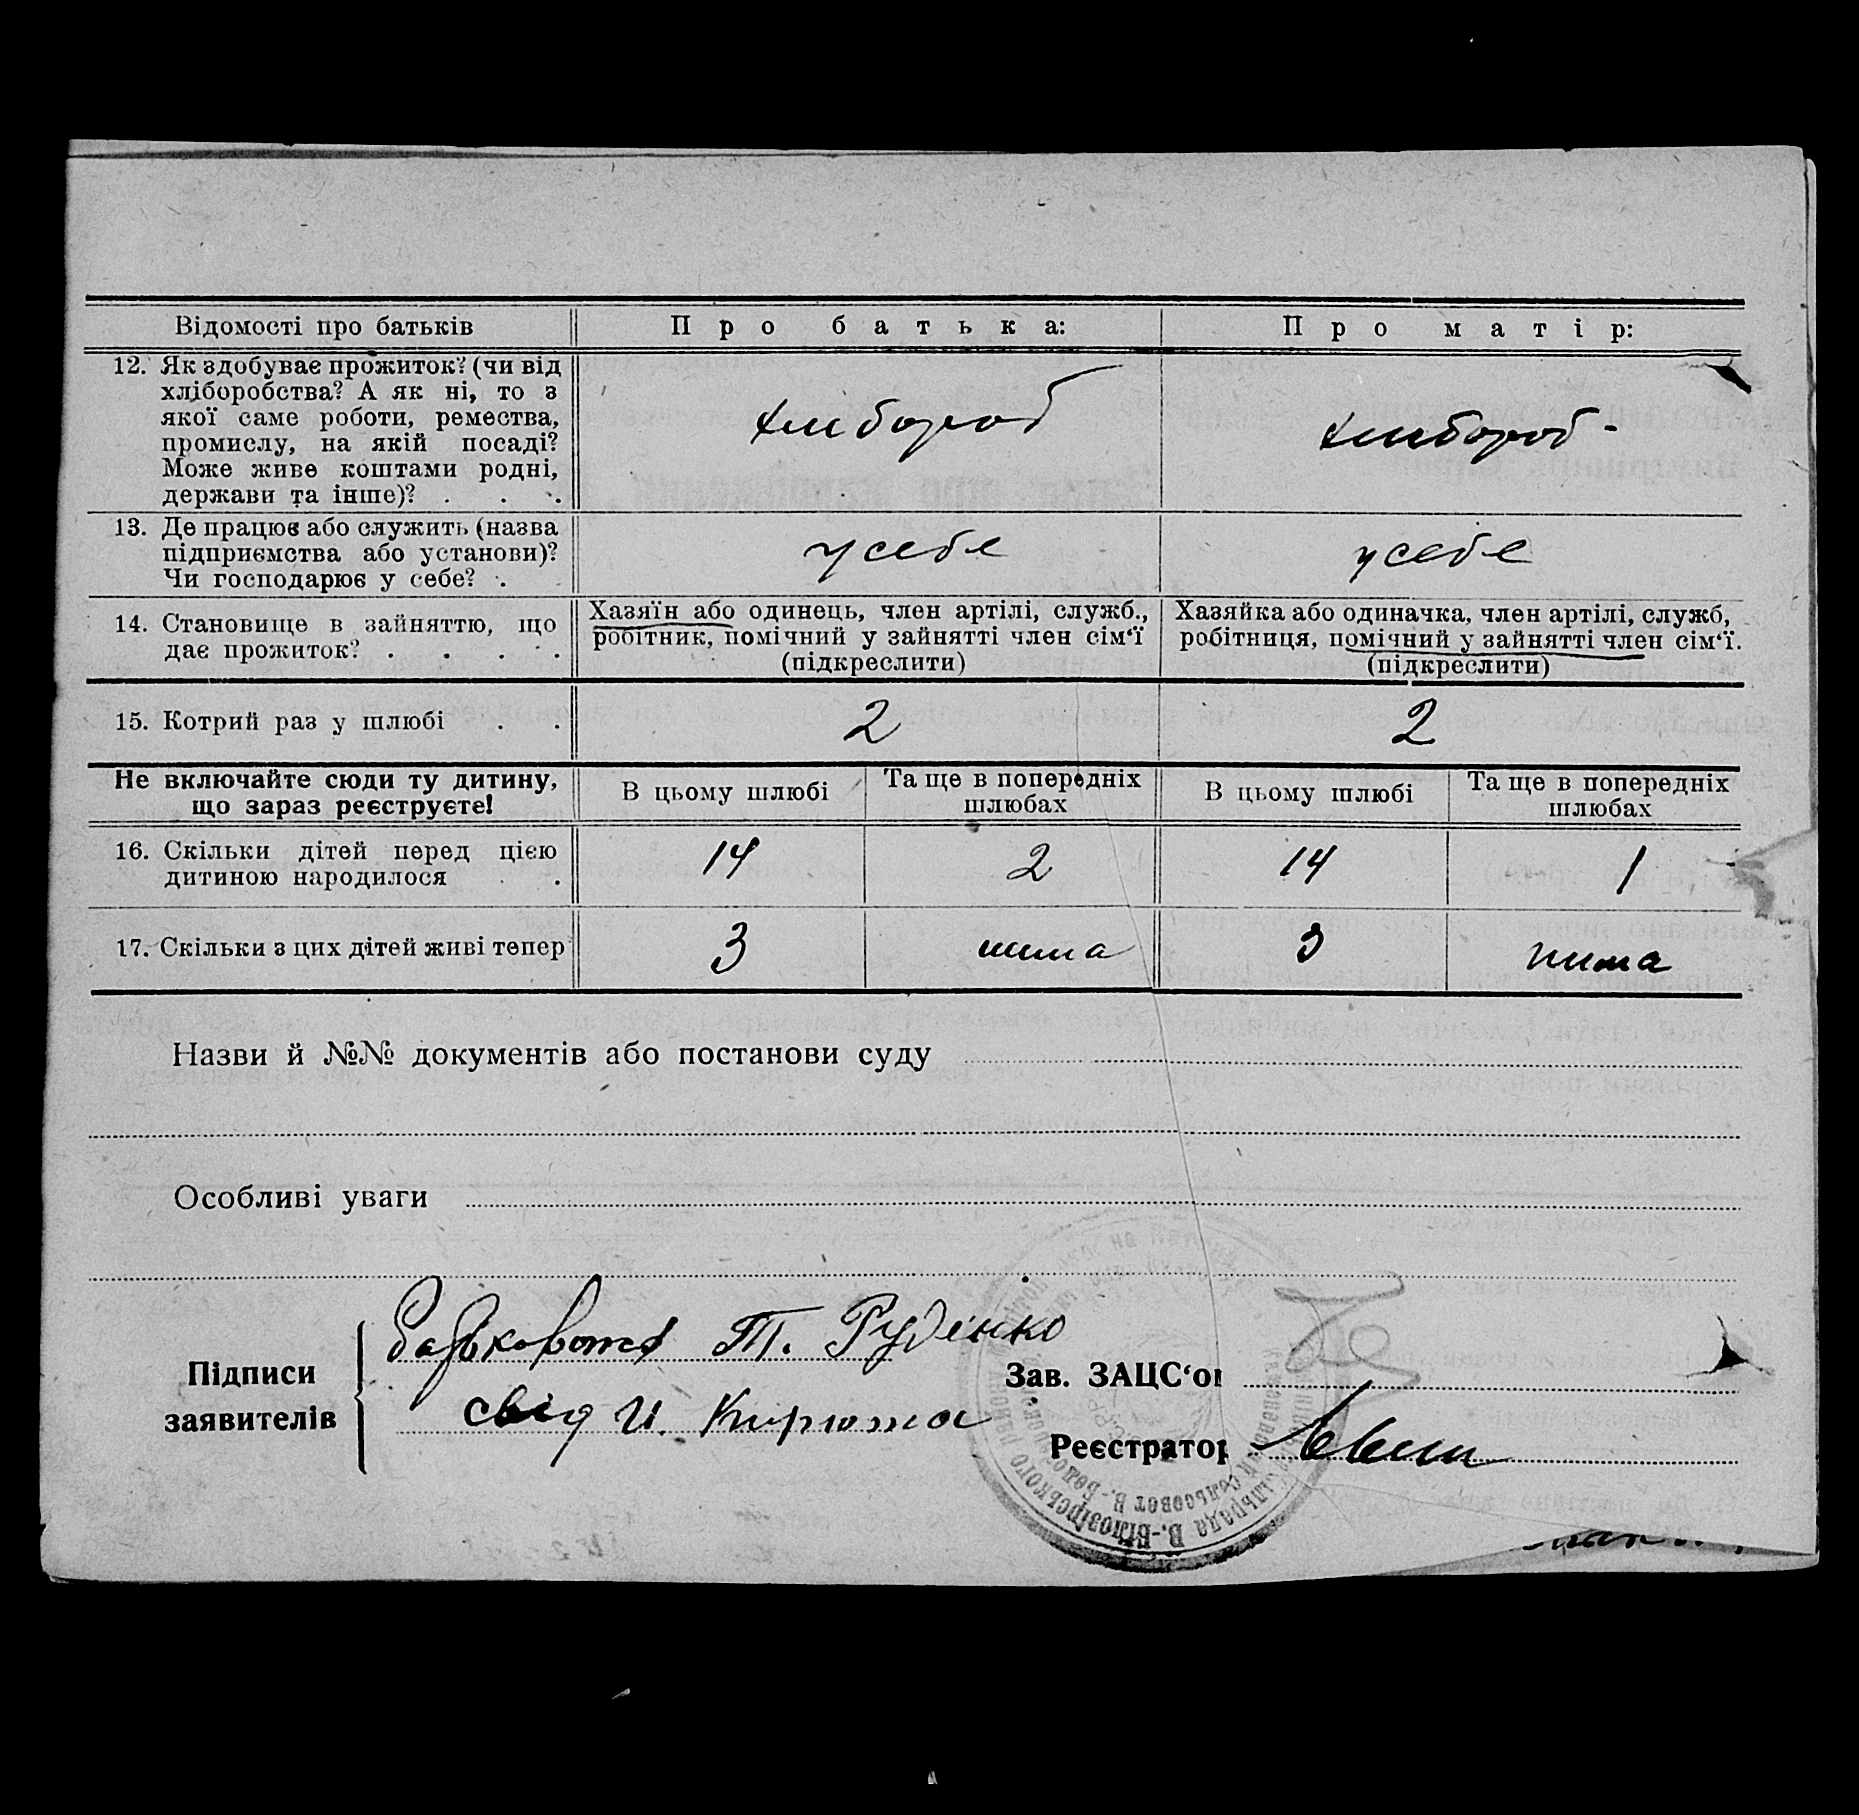 Відомості про батьків
Про батька:
Про матір:
12. Як здобуває прожиток? (чи від
хліборобства? А як ні, то з
якої саме роботи, ремества,
промислу, на якій посаді?
Може живе коштами родні,
держави та інше)? . . .
хлібороб
хлібороб -
13. Де працює або служить (назва
підприємства або установи)?
Чи господарює у себе? .
у себе
у себе
14. Становище в зайняттю, що
дає прожиток? . . . .
Хазяїн або одинець, член артілі, служб.,
робітник, помічний у зайнятті член сім‘ї
(підкреслити)
Хазяйка або одиначка, член артілі, служб,
робітниця, помічний у зайнятті член сім‘ї.
(підкреслити)
15. Котрий раз у шлюбі . .
2
2
Не включайте сюди ту дитину,
що зараз реєструєте!
В цьому шлюбі
Та ще в попередніх
шлюбах
В цьому шлюбі
Та ще в попередніх
шлюбах
16. Скільки дітей перед цією
дитиною народилося . .
14
2
14
1
17. Скільки з цих дітей живі тепер
3
нима
3
нима
Назви й №№ документів або постанови суду
Особливі уваги
Підписи
заявителів
Т. Руденко
свід И. Кирюта
Зав. ЗАЦС‘ог
Реєстратор
сільрада В.-Білозірського
сельсовет В.-Белозирск.